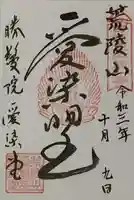 荒陵山
令和三年
十月九日
愛染明王
勝鬘院
愛染堂